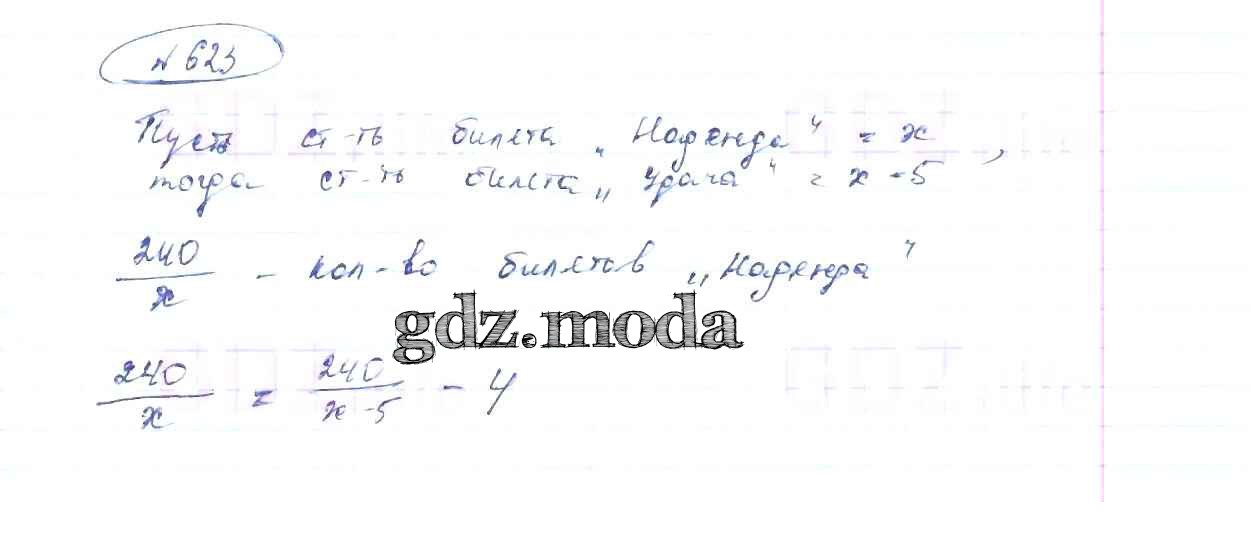 № 623
Пусть ст-ть билета „Надежда“ = x,
тогда ст-ть билета „Удача“ = x - 5
240/x - кол-во билетов „Надежда“
gdz.moda
240/x = 240/x-5 - 4